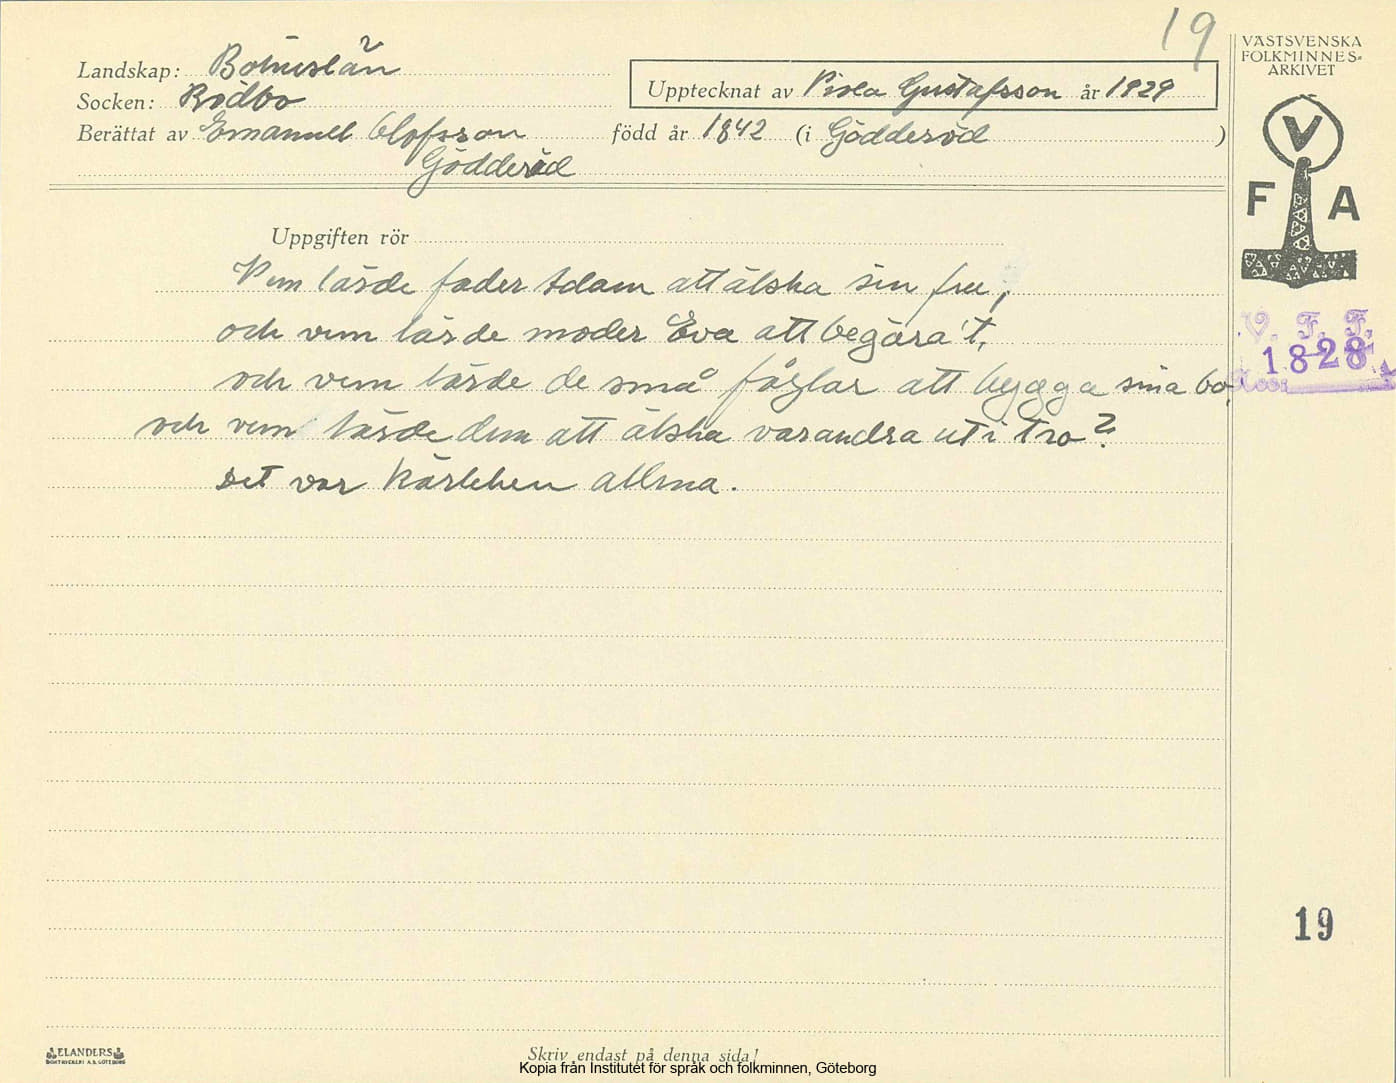 19
VÄSTSVENSKA
FOLKMINNES-
ARKIVET
Landskap: Bohuslän
Socken: Rödbo
Upptecknat av Gustafsson år 1929
Berättat av Emanuel Olofsson född år 1842 (i Gödderöd )
Gödderöd
V
F A
Uppgiften rör
Vem lärde fader Adam att älska sin fru,
och vem lärde moder Eva att begära't,
och vem lärde de små fåglar att bygga sina bo,
och vem lärde dem att älska varandra uti tro?
Det var kärleken allena.
V. F. F.
1828
19
ELANDERS
BOKTRYCKERI A.B. GÖTEBORG
Skriv endast på denna sida!
Kopia från Institutet för språk och folkminnen, Göteborg